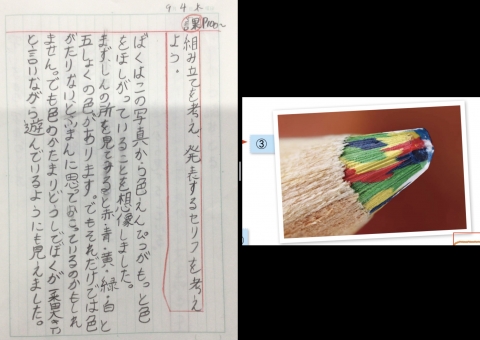 9.4.木
課 P100〜
組み立てを考え、発表するセリフを考え
よう。
ぼくはこの写真から色えんぴつがもっと色
をほしがっていることを想像しました。
まず、しんの所を見てみると赤・青・黄・緑・白と
五しょくの色があります。でもそれだけでは色
がたりないとふまんに思っているのかもしれ
ません。でも色のかたまりどうしでぼくが一番
と言いながら遊んでいるようにも見えました。
③